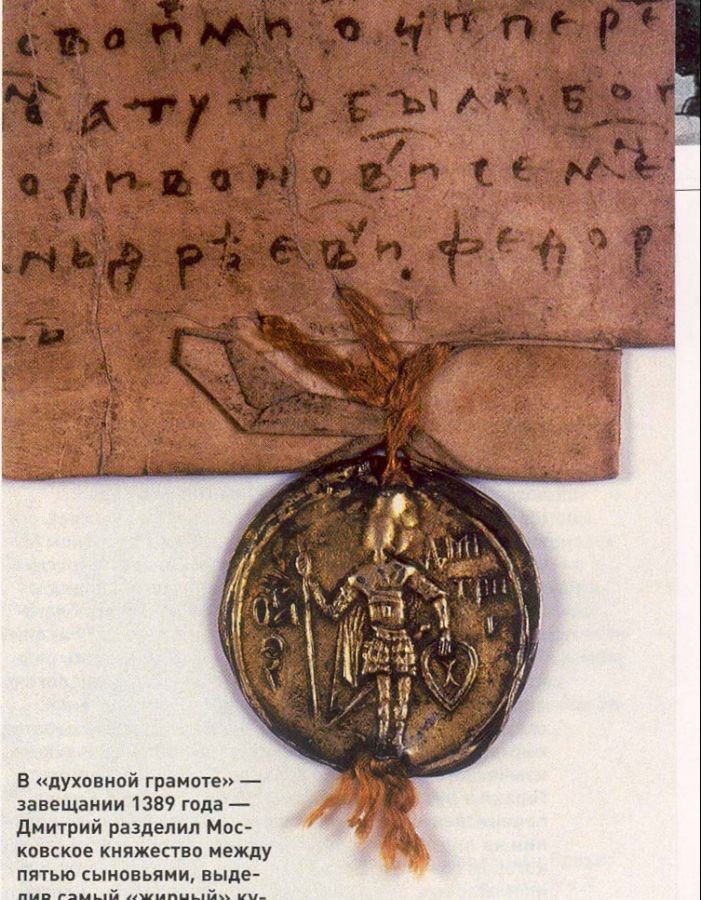 своими очи пере
а ту то были бо
оди вонови семе
ньдрѣеви. федор
дми
три
В «духовной грамоте» —
завещании 1389 года —
Дмитрий разделил Мос-
ковское княжество между
пятью сыновьями, выде-
лив самый «жирный» ку-